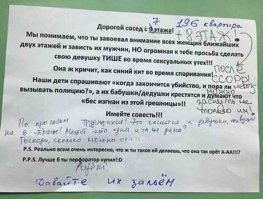 7 196 квартира
Дорогой сосед с 9 этажа!
+ 8 ЭТАЖ!
Мы понимаем, что ты завоевал внимание всех женщин ближайших
двух этажей и зависть их мужчин, НО огромная к тебе просьба сделать
свою девушку ТИШЕ во время сексуальных утех!!!
Она ж кричит, как синий кит во время спаривания!
Наши дети спрашивают «когда закончится убийство, и пора ли
вызывать полицию?», а их бабушки/дедушки крестятся и думают что
«бес изгнан из этой грешницы!!
ПОСЛЕ
ССОРЫ
МОЖНО
ЗАСНУТЬ НЕ
ТОЛЬКО ИМ!
Имейте совесть!!!
По
на 8 этаже! Может это одна и та же
Господи, сколько можно
P.S. Реально всем очень интересно, что ж ты такое ей делаешь, что она так орёт А-ААА!!!?
P.P.S. Лучше б ты перфоратор купил!:D
Давайте их зальём